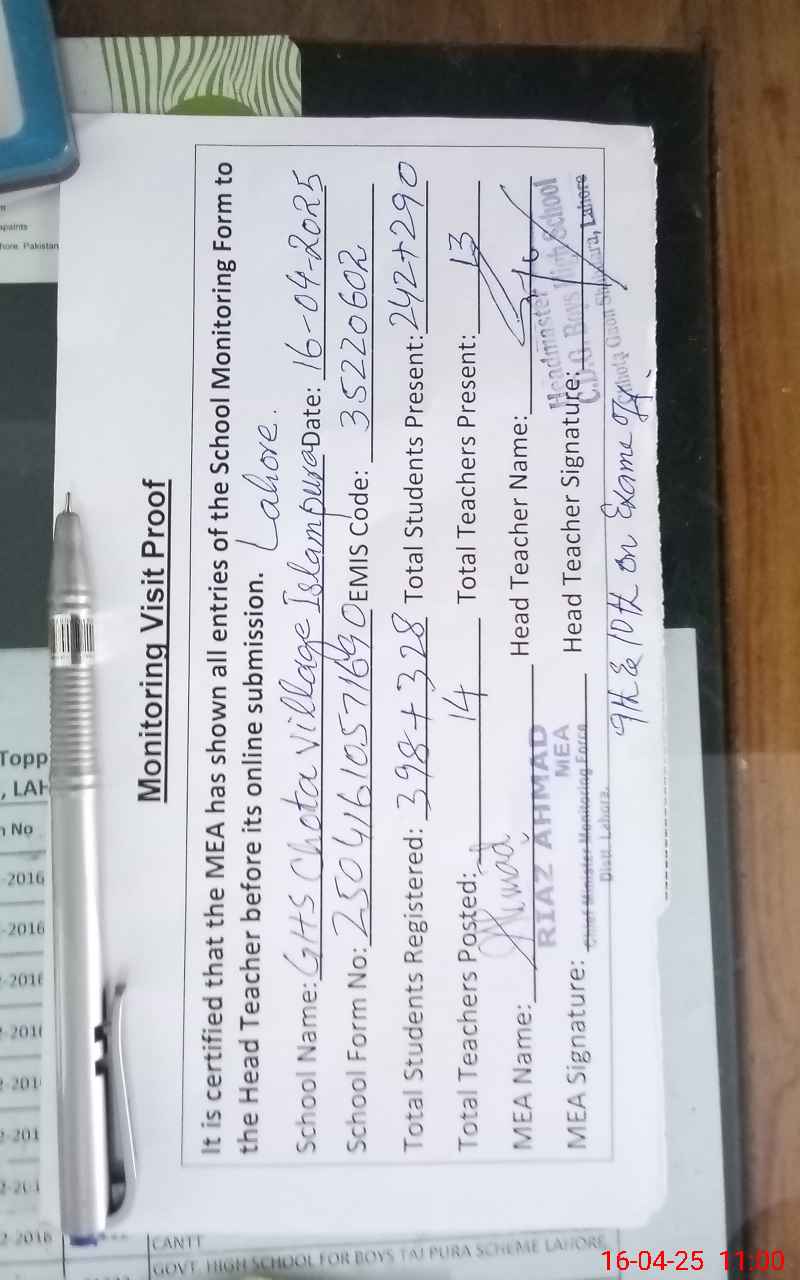 Monitoring Visit Proof
It is certified that the MEA has shown all entries of the School Monitoring Form to
the Head Teacher before its online submission. Lahore.
School Name: GHS Chota Village Islampura Date: 16-04-2025
School Form No: 25041610571690 EMIS Code: 35220602
Total Students Registered: 398+328 Total Students Present: 242+290
Total Teachers Posted: 14 Total Teachers Present: 13
MEA Name: Head Teacher Name:
RIAZ AHMAD
MEA
Chief Minister Monitoring Force
Distt. Lahore.
MEA Signature: Head Teacher Signature:
Headmaster
C.D.G. Boys High School
Lahore
9th & 10th on Exame
Topp
, LAH
n No
-2016
-2016
-2016
CANTT
GOVT. HIGH SCHOOL FOR BOYS TAJ PURA SCHEME LAHORE
hore. Pakistan
16-04-25 11:00